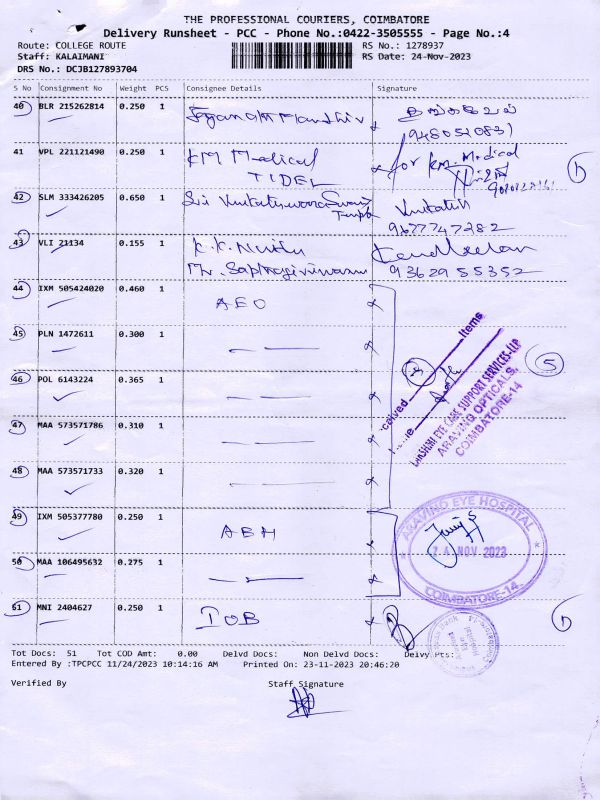 THE PROFESSIONAL COURIERS, COIMBATORE
Delivery Runsheet - PCC - Phone No.:0422-3505555 - Page No.:4
Route: COLLEGE ROUTE RS No.: 1278937
Staff: KALAIMANI RS Date: 24-Nov-2023
DRS No.: DCJB127893704
S No Consignment No Weight PCS Consignee Details Signature
40 BLR 215262814 0.250 1
9480520831
41 VPL 221121490 0.250 1 KM Medical for KM. Medical
TIDEL
42 SLM 333426205 0.650 1 Sri
9677747282
43 VLI 21134 0.155 1 K.K.
9362955352
44 IXM 505424020 0.460 1 AEO
45 PLN 1472611 0.300 1
46 POL 6143224 0.365 1
47 MAA 573571786 0.310 1
48 MAA 573571733 0.320 1
Items
LAKSHMI EYE CARE SUPPORT SERVICES-LLP
ARAVIND OPTICALS,
COIMBATORE-14
5
49 IXM 505377780 0.250 1 AEH
50 MAA 106495632 0.275 1
ARAVIND EYE HOSPITAL
24 NOV 2023
COIMBATORE-14.
51 MNI 2404627 0.250 1 IOB
Tot Docs: 51 Tot COD Amt: 0.00 Delvd Docs: Non Delvd Docs: Delvy.Pts:
Entered By :TPCPCC 11/24/2023 10:14:16 AM Printed On: 23-11-2023 20:46:20
Verified By Staff Signature